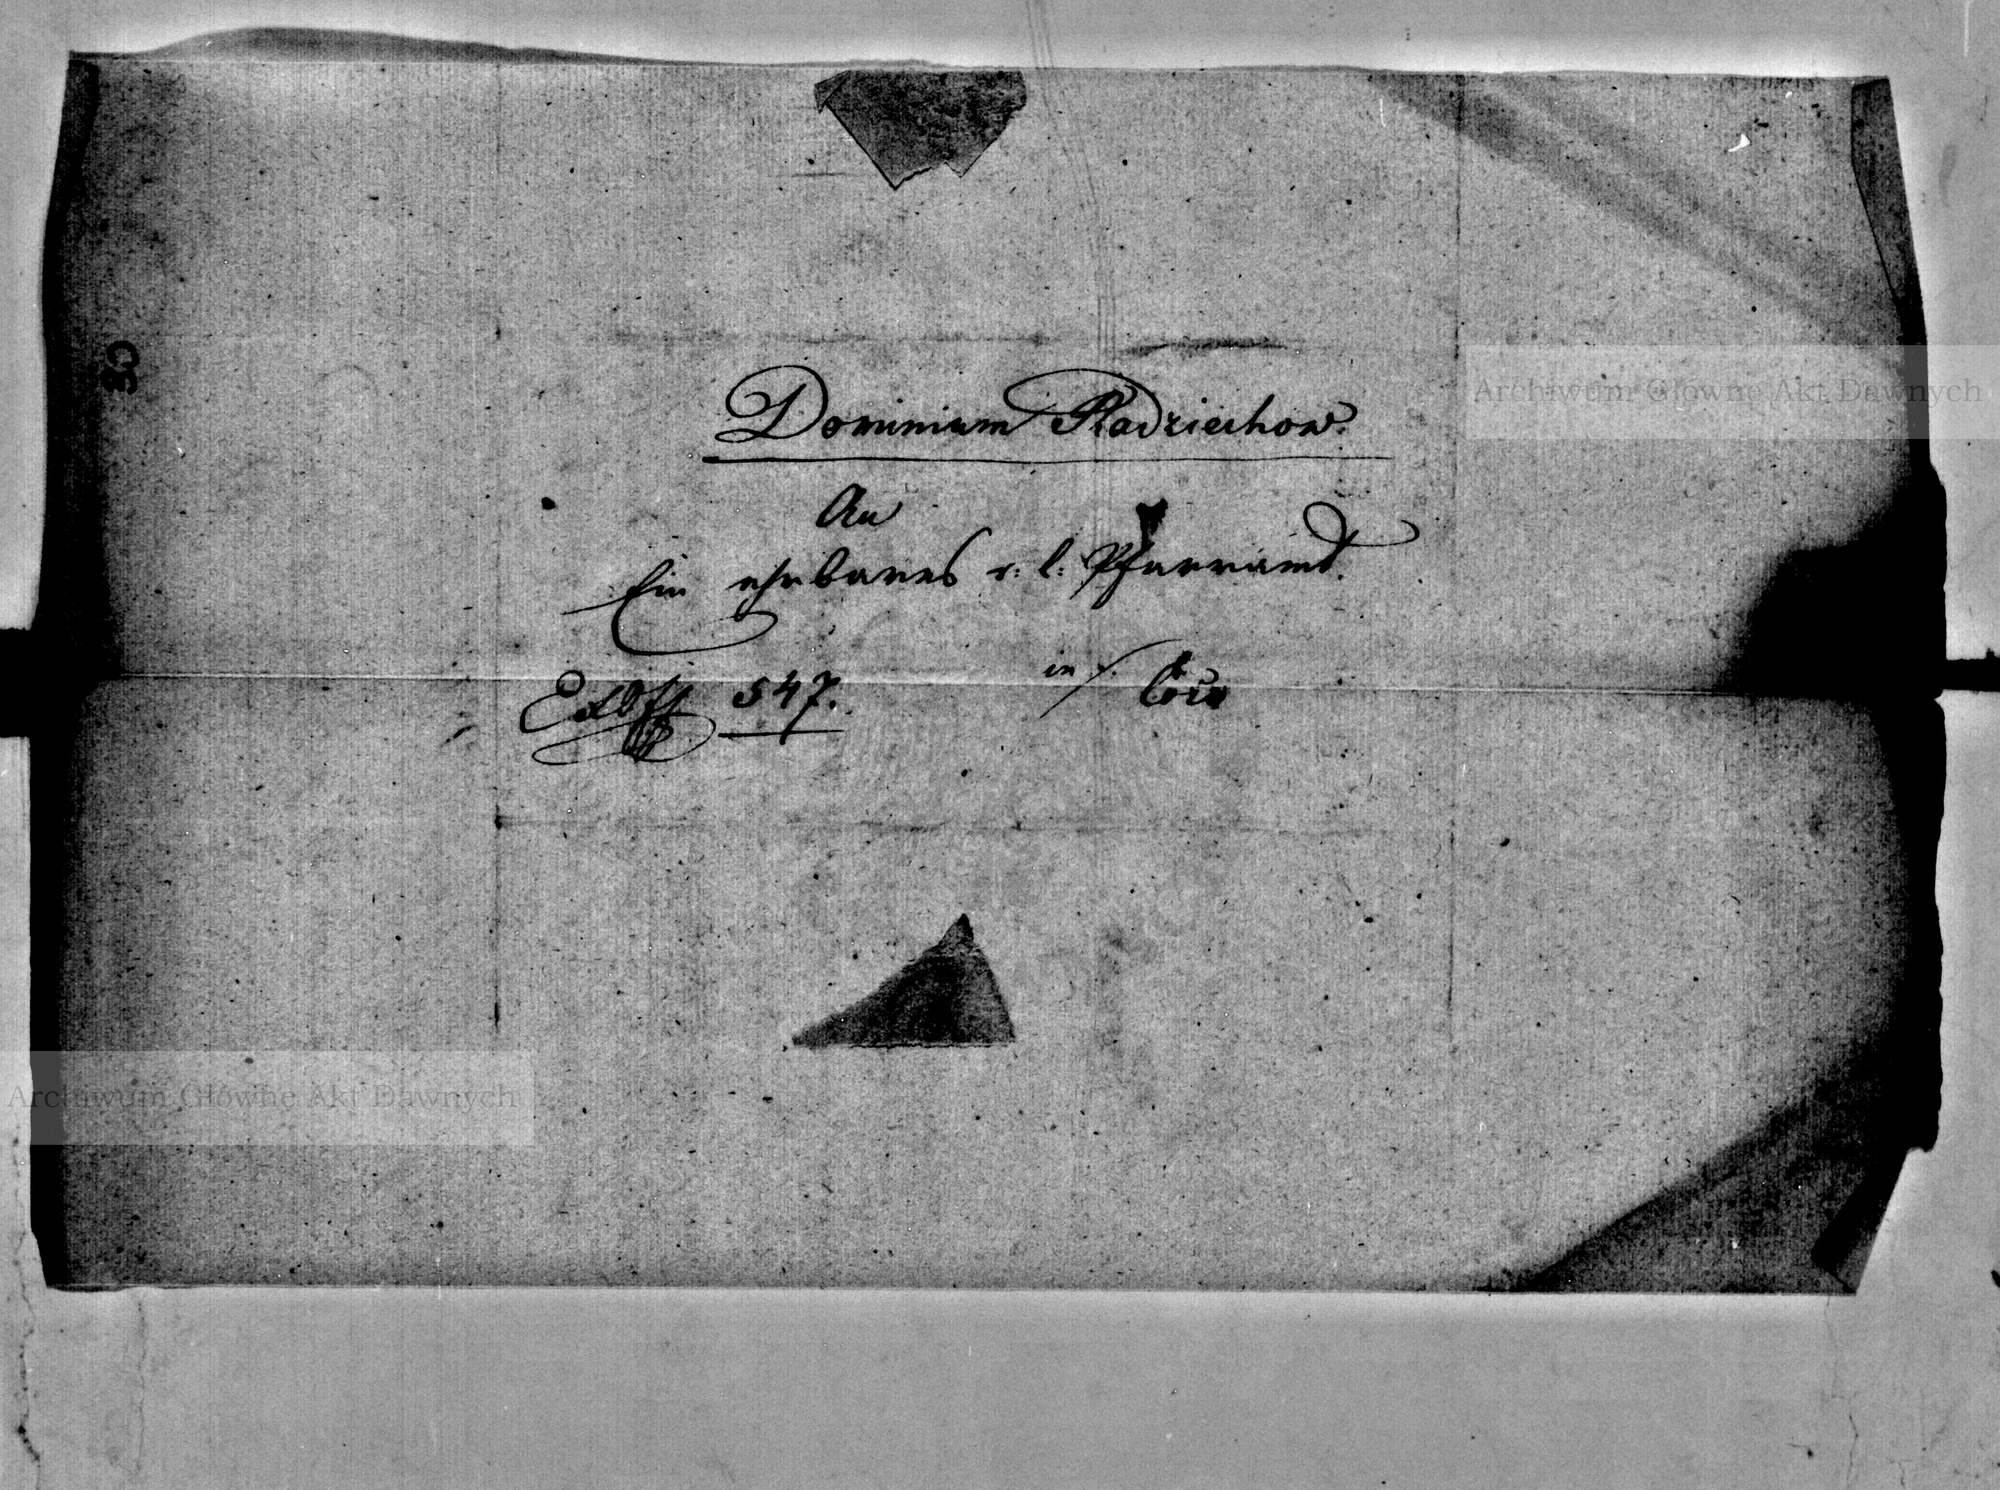 30
Dominium Radziechow.
An
Ein ehrbares r: l: Pfarramt.
in
547.
Archiwum Główne Akt Dawnych
Archiwum Główne Akt Dawnych